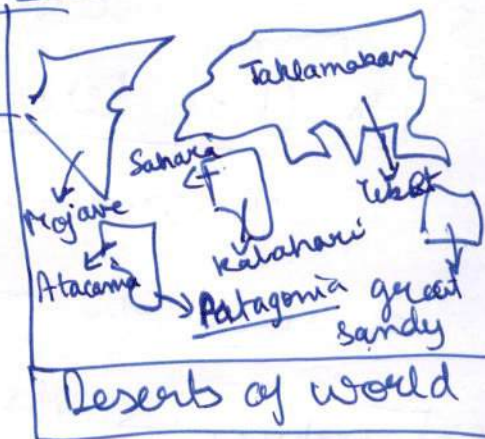 Taklamakan
Sahara
Mojave
Kalahari
Atacama
Patagonia
great
sandy
Deserts of world